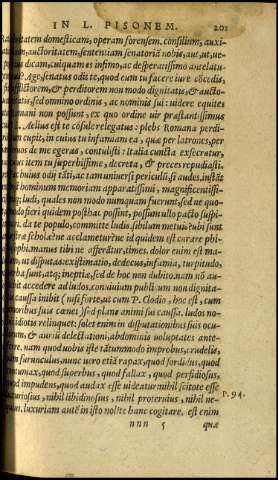 IN L. PISONEM. 201
domesticam, operam forensem, consilium, auxi-
auctoritatem, sententiam senatoriā nobis, aut, ut ue-
dicam, cuiquam ex infimo, ac desperatissimo antelatu-
Age, senatus odit te, quod eum tu facere iure cōcedis,
& perditorem non modo dignitatis, & aucto-
sed omnino ordinis, ac nominis sui: uidere equites
non possunt, ex quo ordine uir præstantissimus
Aelius est te cōsule relegatus: plebs Romana perdi-
cupit, in cuius tu infamiam ea, quæ per latrones, per
de me egeras, contulisti: Italia cuncta exsecratur,
item tu superbissime, decreta, & preces repudiasti.
huius odij tāti, ac tam uniuersi periculū, si audes. instāt
hominum memoriam apparatissimi, magnificentissi-
ludi, quales non modo numquam fuerunt, sed ne quo-
fieri quidem posthac possint, possum ullo pacto suspi-
da te populo, committe ludis. sibilum metuis? ubi sunt
schola? ne acclametur? ne id quidem est curare phi-
manus tibi ne afferātur, times. dolor enim est ma-
ut disputas: existimatio, dedecus, infamia, turpitudo,
sunt, atq; ineptiæ. sed de hoc non dubito. nam nō au-
accedere ad ludos. conuiuium publicum non dignita-
caussa inibit (nisi forte, ut cum P. Clodio, hoc est, cum
suis cœnet) sed plane animi sui caussa. ludos no-
idiotis relinquet: solet enim in disputationibus suis ocu-
& aurium delectationi, abdominis uoluptates ante-
nam quod uobis iste tātummodo improbus, crudelis,
furunculus, nunc uero etiā rapax, quod sordidus, quod
quod superbus, quod fallax, quod perfidiosus,
quod impudens, quod audax esse uideatur, nihil scitote esse
luxuriosius, nihil libidinosius, nihil proteruius, nihil ne-
luxuriam autē in isto nolite hanc cogitare. est enim
P. 94.
nnn 5 quæ